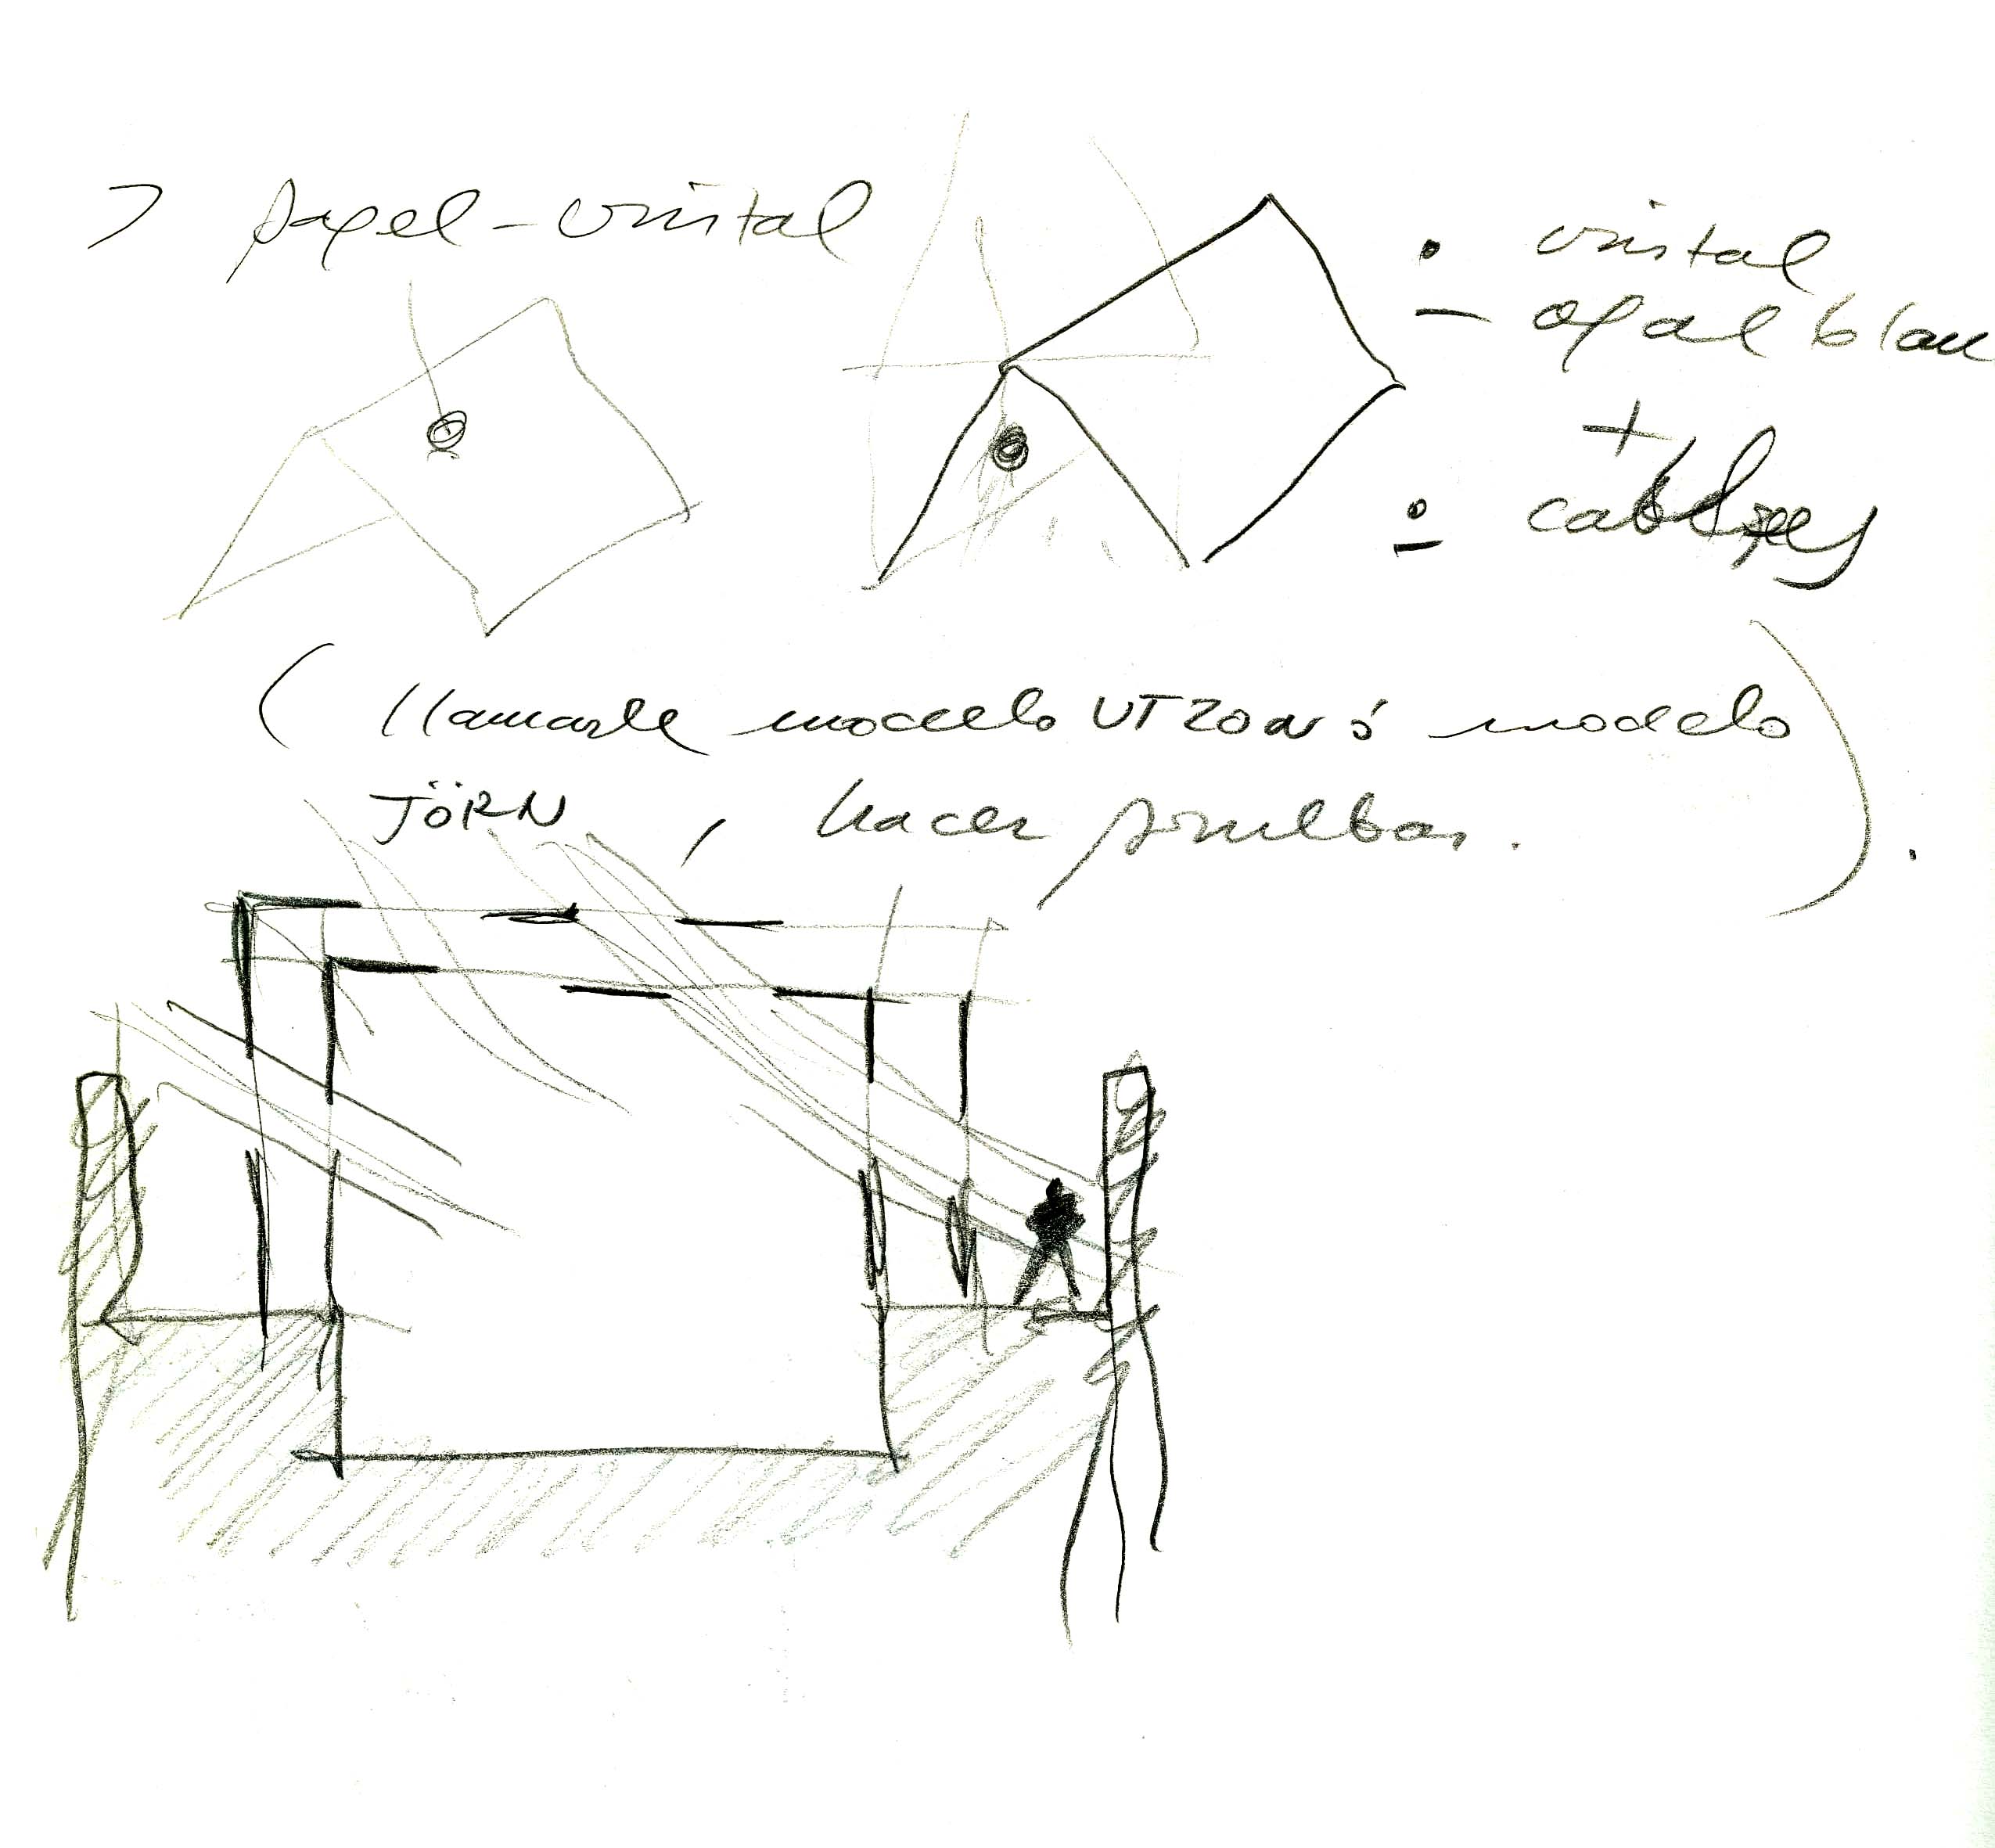 > papel-cristal
• cristal
- opal blan
+
• cables
(llamarle modelo UTZON ó modelo
JÖRN, hacer pruebas.).